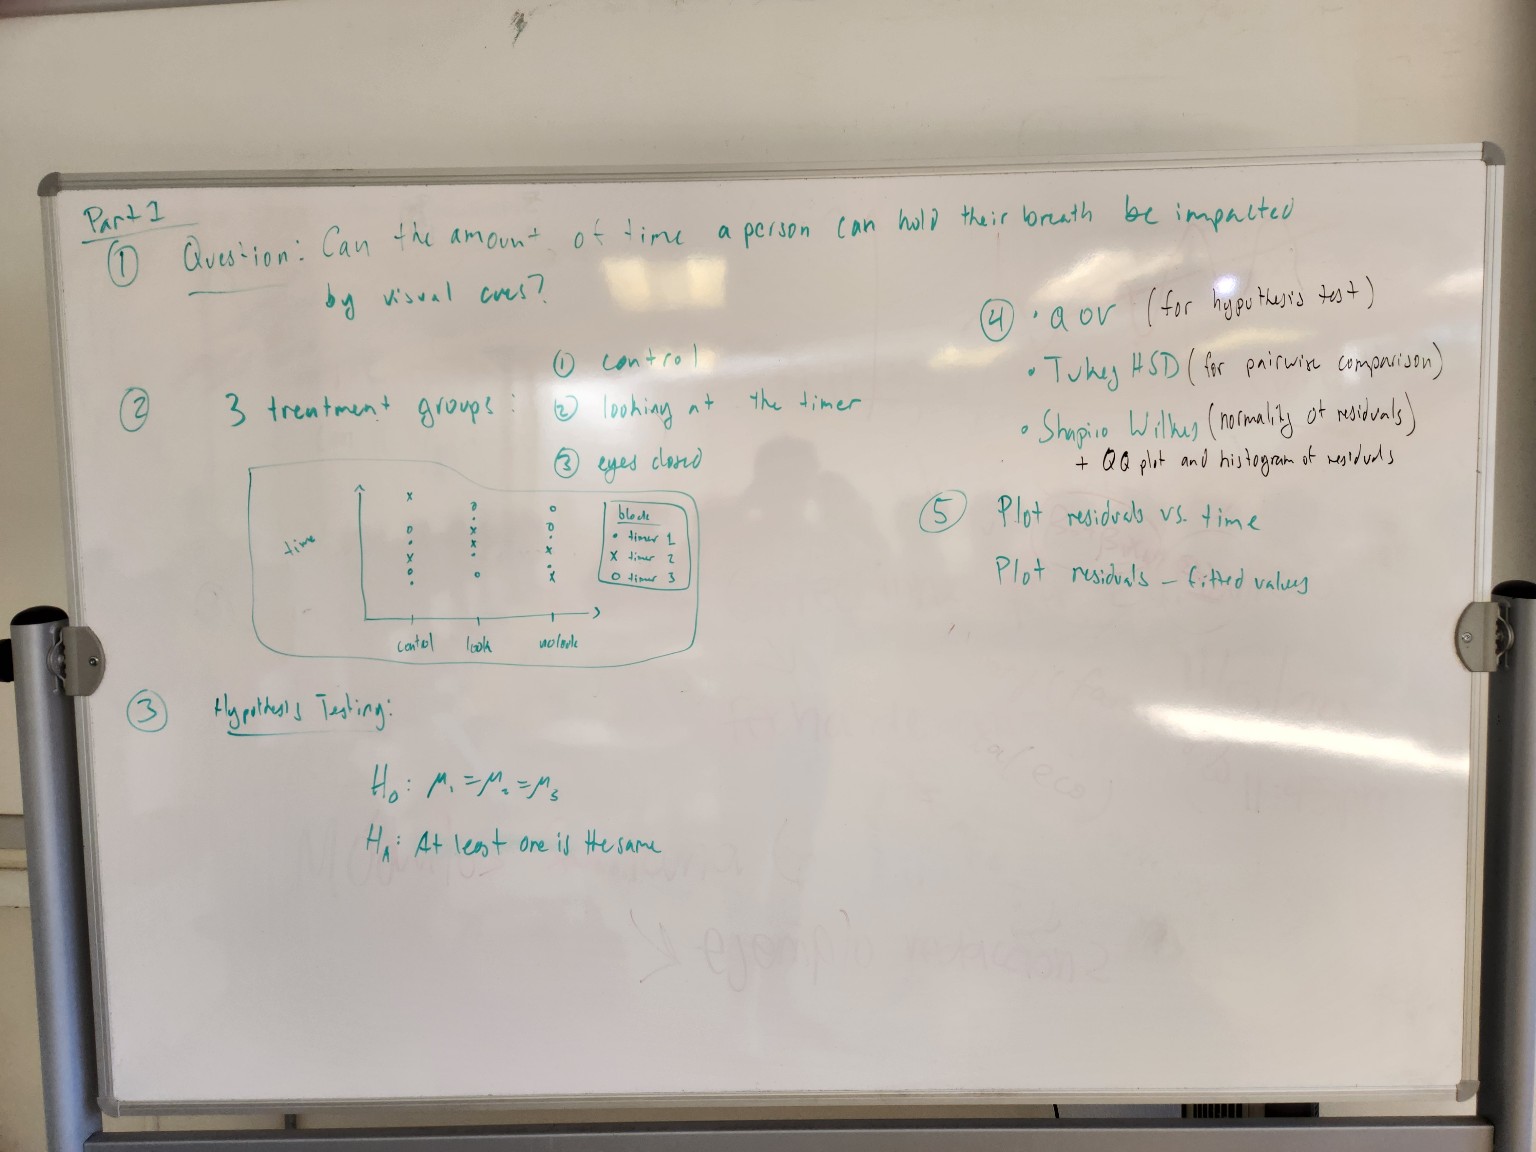 Part 1
① Question: Can the amount of time a person can hold their breath be impacted
by visual cues?
② 3 treatment groups: ① control
② looking at the timer
③ eyes closed
time
control look no look
block
• timer 1
x timer 2
o timer 3
③ Hypothesis Testing:
H₀: μ₁ = μ₂ = μ₃
H_A: At least one is the same
④ • aov (for hypothesis test)
• Tukey HSD (for pairwise comparison)
• Shapiro Wilkes (normality of residuals)
+ QQ plot and histogram of residuals
⑤ Plot residuals vs. time
Plot residuals – fitted values